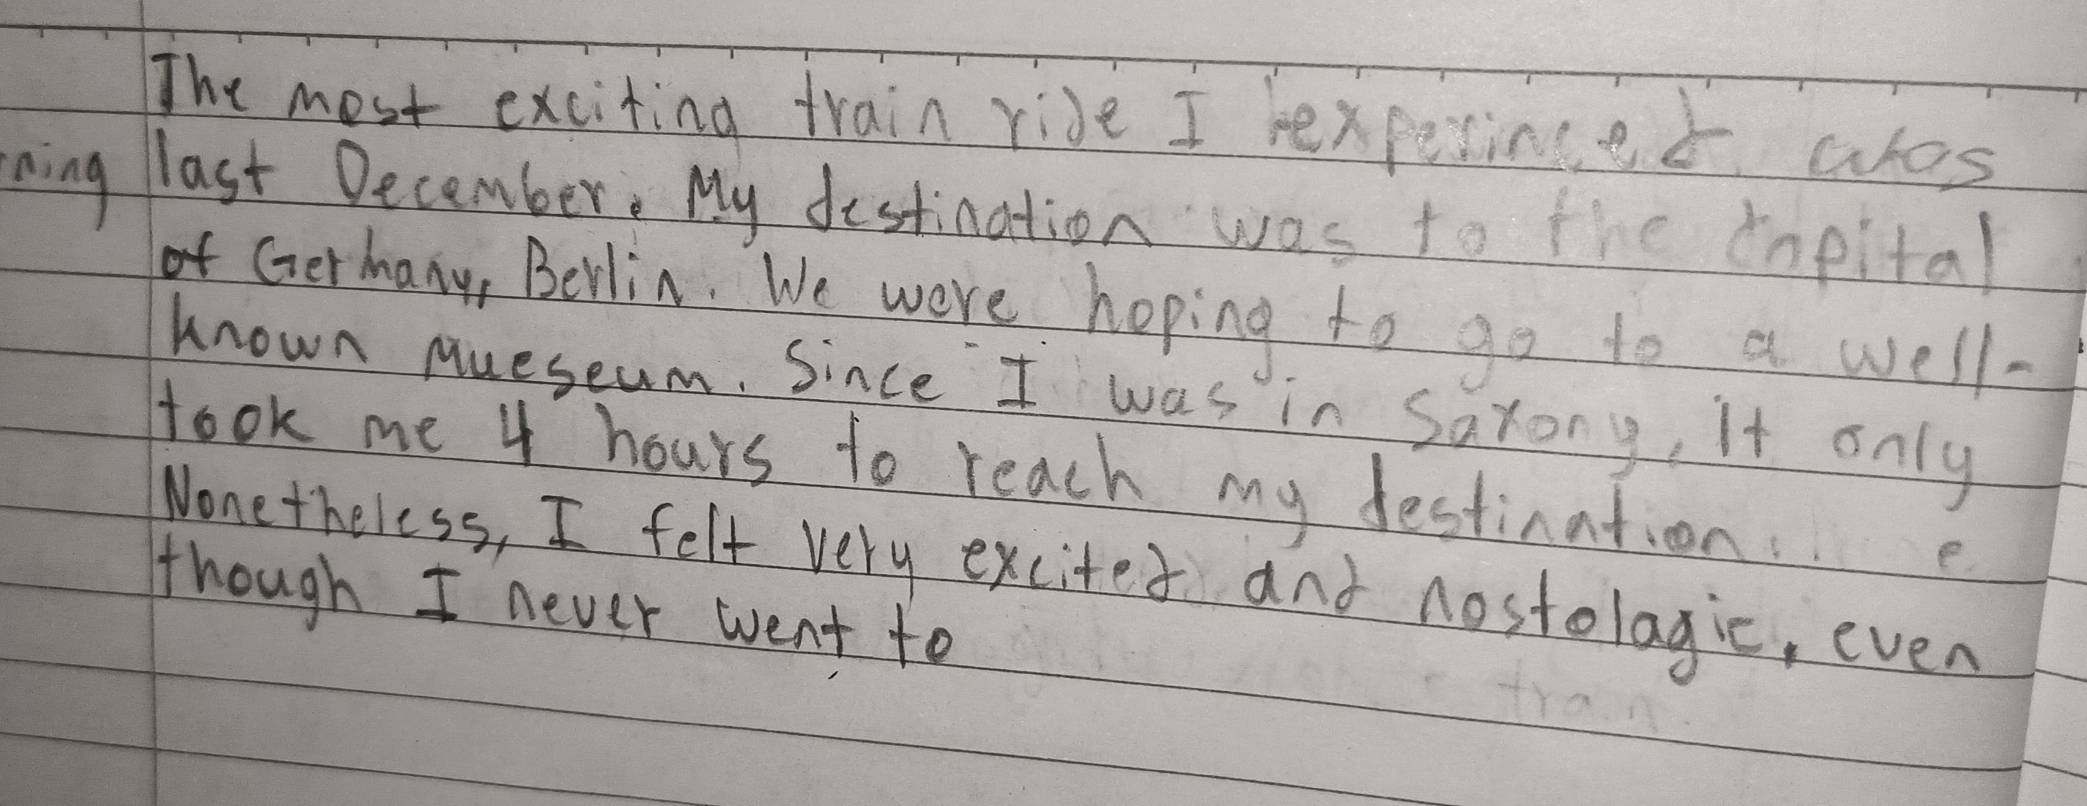 The most exciting train ride I experinced was
ning last December. My destination was to the capital
of Germany, Berlin. We were hoping to go to a well-
known Mueseum. Since I was in Saxony, it only
took me 4 hours to reach my destination.
Nonetheless, I felt very excited and nostolagic, even
though I never went to
train